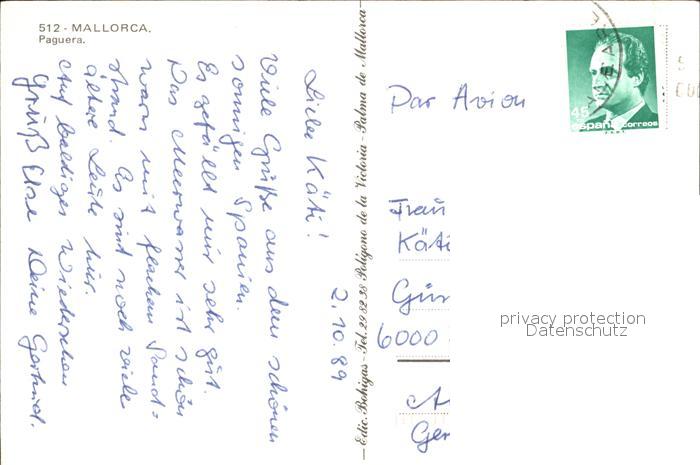 512 - MALLORCA.
Paguera.
2.10.89
Liebe Käti!
Viele Grüße aus dem schönen
sonnigen Spanien.
Es gefällt mir sehr gut.
Das Meerwasser ist schön
warm mit flachem Sand=
strand. Es sind noch viele
ältere Leute hier.
Auf baldiges Wiedersehen
Gruß Deine Gertrud.
Edic. Bohigas - Tel. 29 82 98 Poligono de la Victoria - Palma de Mallorca
Par Avion
45
españa correos
Frau
Käti
Gün
6000
Ger
privacy protection
Datenschutz